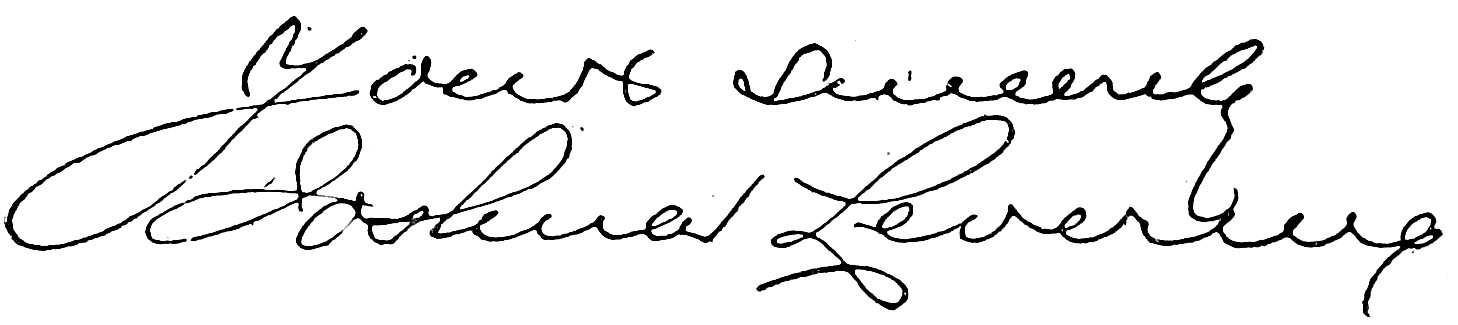 Yours sincerely
Joshua Levering